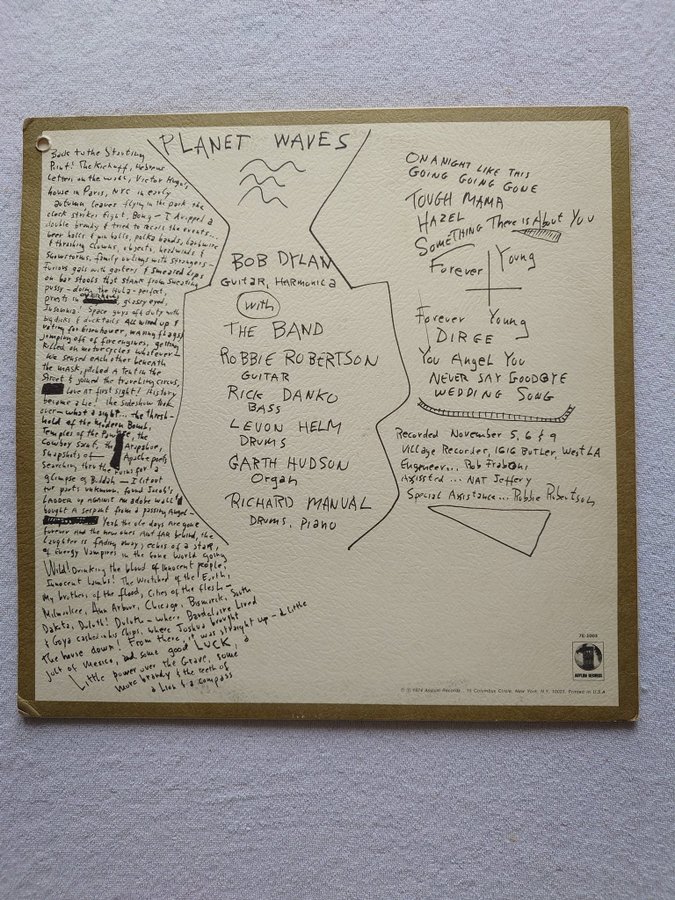 Back to the Starting
Point! The Kickoff, Hebrew
Letters on the wall, Victor Hugo's
house in Paris, NYC in early
autumn, leaves flying in the park, the
clock strikes Eight, Bong — I dropped a
double brandy & tried to recall the events...
beer halls & pin balls, polka bands, barbwire
& thrashing clowns, objects, headwinds &
snowstorms, family outings with strangers —
Furious gals with garters & smeared lips
on bar stools that stank from sweating
pussy — doing the Hula — perfect,
priests in overhauls, glassy eyed,
Insomnia! Space guys off duty with
big dicks & ducktails All wired up &
voting for Eisenhower, waving flags &
jumping off of fire engines, getting
killed on motorcycles whatever —
We sensed each other beneath
the mask, pitched a tent in the
Street & joined the traveling circus,
Love at first sight! History
became a Lie! The sideshow took
over — what a sight... the thresh-
hold of the Modern Bomb,
Temples of the Pawnee, the
Cowboy Saint, the Arapahoe,
Snapshots of Apache poets
Searching thru the ruins for a
glimpse of Buddah — I lit out
for parts unknown, found Jacob's
Ladder up against an adobe wall &
bought a serpent from a passing Angel —
Yeah the ole days are gone
forever and the new ones Aint far behind, the
Laughter is fading away, echos of a star,
of Energy Vampires in the Gone World going
Wild! Drinking the blood of innocent people,
Innocent Lambs! The Wretched of the Earth,
My brothers of the flood, Cities of the flesh —
Milwaukee, Ann Arbor, Chicago, Bismarck, South
Dakota, Duluth! Duluth — where Baudelaire Lived
& Goya cashed in his Chips, where Joshua brought
the house down! From there, it was straight up — a little
jolt of Mexico, and some good LUCK, a
Little power over the Grave, some
more brandy & the teeth of
a Lion & a compass
PLANET WAVES
BOB DYLAN
GUITAR, HARMONICA
with
THE BAND
ROBBIE ROBERTSON
GUITAR
RICK DANKO
BASS
LEVON HELM
DRUMS
GARTH HUDSON
Organ
RICHARD MANUAL
DRUMS, PIANO
ON A NIGHT LIKE THIS
GOING GOING GONE
TOUGH MAMA
HAZEL
SOMETHING There is About You
Forever Young
Forever Young
DIRGE
You Angel You
NEVER SAY GOODBYE
WEDDING SONG
Recorded November 5, 6 & 9
Village Recorder, 1616 Butler, West LA
Engineer... Rob Fraboni
Assisted... NAT Jeffery
Special Assistance... Robbie Robertson
7E-1003
ASYLUM RECORDS
© ℗ 1974 Asylum Records, 15 Columbus Circle, New York, N.Y. 10023. Printed in U.S.A.